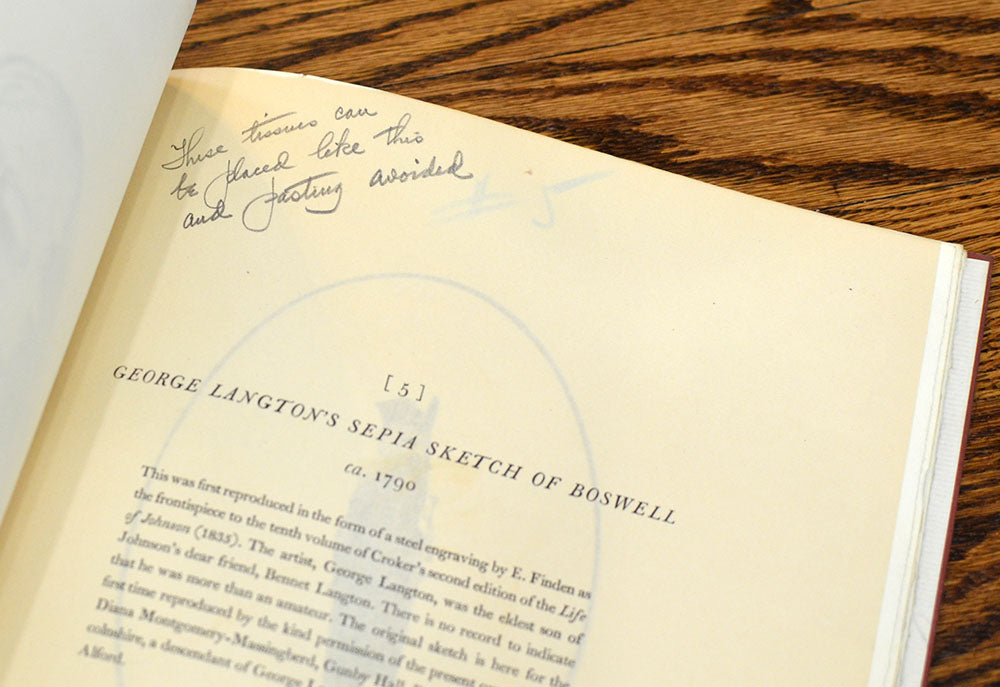 These tissues can
be placed like this
and pasting avoided
# 5
[5]
GEORGE LANGTON'S SEPIA SKETCH OF BOSWELL
ca. 1790
This was first reproduced in the form of a steel engraving by E. Finden as
the frontispiece to the tenth volume of Croker's second edition of the Life
of Johnson (1835). The artist, George Langton, was the eldest son of
Johnson's dear friend, Bennet Langton. There is no record to indicate
that he was more than an amateur. The original sketch is here for the
first time reproduced by the kind permission of the present
Diana Montgomery-Massingberd, Gunby Hall,
colnshire, a descendant of George
Alford.